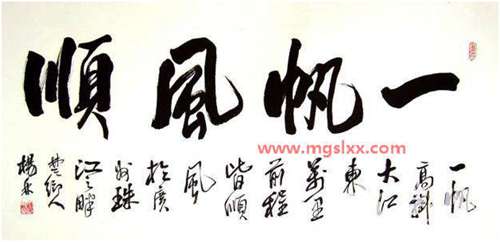 一帆風順
www.mgslxx.com
一帆
高
大江
東
萬里
前程
皆順
風
於廣
州珠
江之畔
楚鄉人
楊